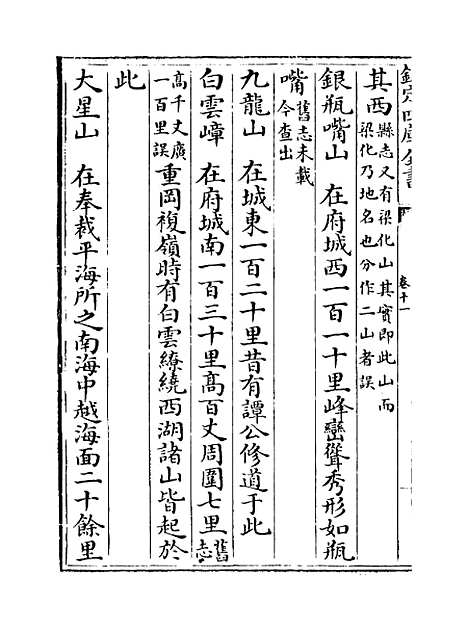 欽定四庫全書
卷十一
其西縣志又有梁化山其實即此山而
梁化乃地名也分作二山者誤
銀瓶嘴山 在府城西一百一十里峰巒聳秀形如瓶
嘴舊志未載
今查出
九龍山 在城東一百二十里昔有譚公修道于此
白雲嶂 在府城南一百三十里高百丈周圍七里舊
志
高千丈廣
一百里誤重岡複嶺時有白雲繚繞西湖諸山皆起於
此
大星山 在奉裁平海所之南海中越海面二十餘里